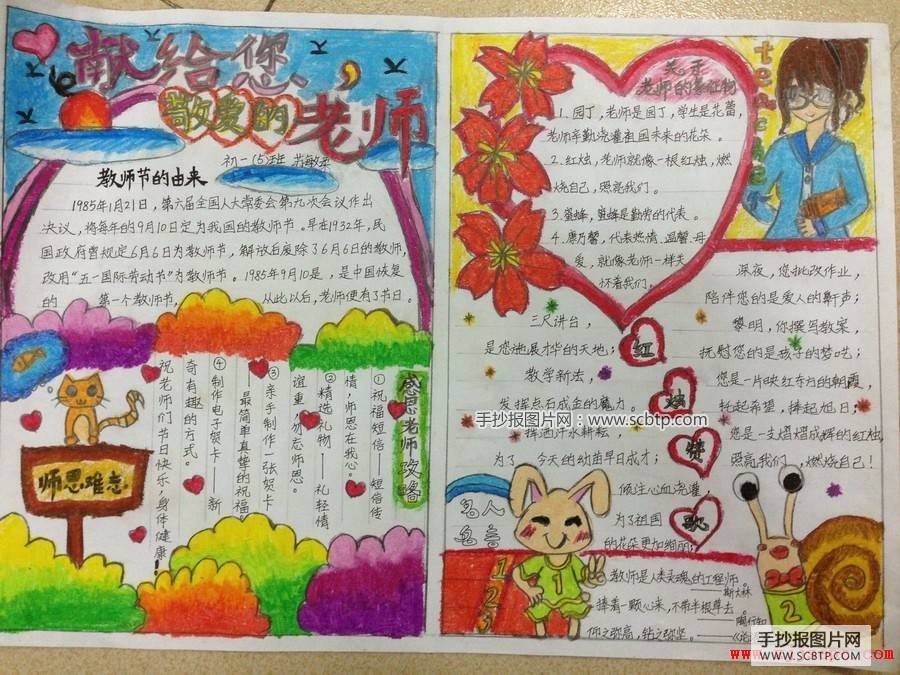 献给您、
敬爱的老师
初一(5)班
教师节的由来
1985年1月21日，第六届全国人大常委会第九次会议作出
决议，将每年的9月10日定为我国的教师节。早在1932年，民
国政府曾规定6月6日为教师节，解放后废除了6月6日的教师，
改用“五一国际劳动节”为教师节。1985年9月10是，是中国恢复
的 第一个教师节， 从此以后，老师便有了节日。
感恩老师攻略
①祝福短信——短信传
情，师恩在我心。
②精选礼物——礼轻情
谊重，勿忘师恩。
③亲手制作一张贺卡
——最简单真挚的祝福。
④制作电子贺卡——新
奇有趣的方式。
祝老师们节日快乐，身体健康！
师恩难忘
关于
老师的象征物
teacher
1.园丁，老师是园丁，学生是花蕾，
老师辛勤浇灌祖国未来的花朵。
2.红烛，老师就像一根红烛，燃
烧自己，照亮我们。
3.蜜蜂，蜜蜂是勤劳的代表。
4.康乃馨，代表热情、温馨、母
爱，就像老师一样关
怀着我们。
红烛赞歌
三尺讲台，
是您施展才华的天地；
教学新法，
发挥点石成金的魔力。
挥洒汗水耕耘，
为了 今天的幼苗早日成才；
倾注心血浇灌，
为了祖国
的花朵更加绚丽；
深夜，您批改作业，
陪伴您的是爱人的鼾声；
黎明，你撰写教案，
抚慰您的是孩子的梦呓；
您是一片映红东方的朝霞，
托起希望，捧起旭日；
您是一支熠熠成辉的红烛，
照亮我们，燃烧自己！
名人
名言
教师是人类灵魂的工程师。
——斯大林
捧着一颗心来，不带半根草去。
——陶行知
仰之弥高，钻之弥坚。
1
2
3
1
2
手抄报图片网
www.scbtp.com
手抄报图片网
WWW.SCBTP.COM